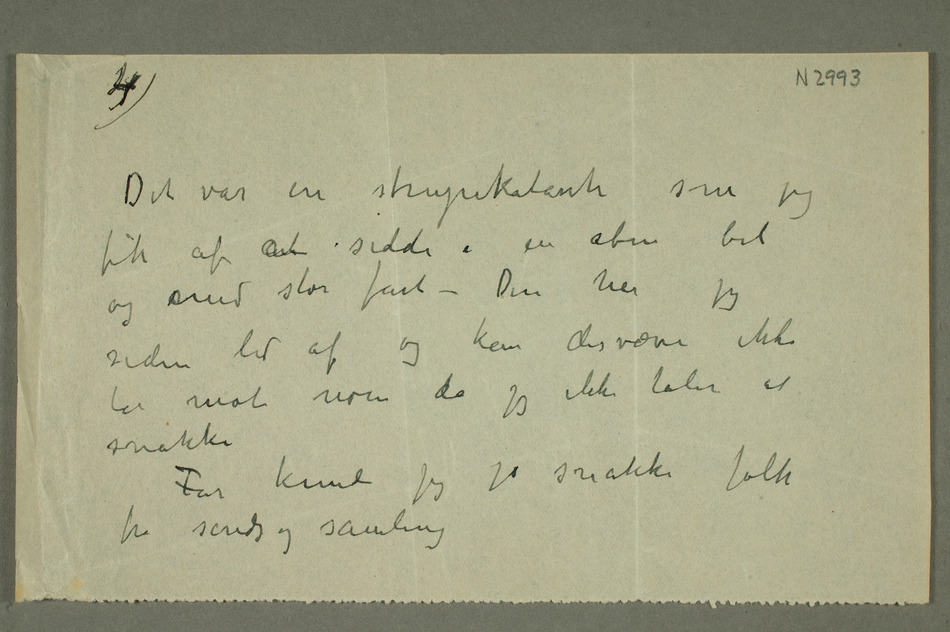 4)
N 2993
Det var en strupekatarrh som jeg
fik af at sidde i en aben bil
og med stor fart – Den har jeg
siden lid af og kan desværre ikke
ta mot noen da jeg ikke taler at
snakke
Før kunde jeg jo snakke folk
fra sands og samling